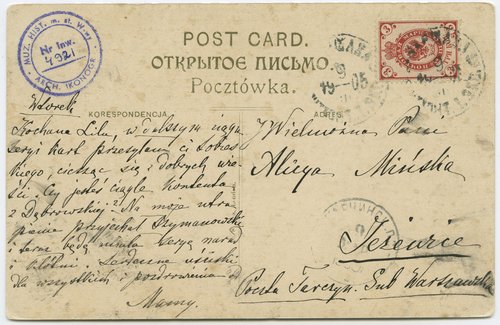 MUZ. HIST. m. st. W-wy
Nr Inw.
4921
ARCH. IKONOGR
POST CARD.
ОТКРЫТОЕ ПИСЬМО.
Pocztówka.
KORESPONDENCJA
ADRES
19 05
Wtorek
Kochana Lilu, w dalszym ciągu
seryi kart przesyłam ci Sobes
kiego, ciesząc się i dobrych wie
ści. Czy jesteś ciągle kontenta
z Dąbrowskiej? Na moje utra
pienie przyjechał Szymanowski
i teraz będą
dla wszystkich i pozdrowienia od
Mamy
Wielmożna Pani
Alicya Mińska
Jeżewice
Poczta Tarczyn. Gub Warszawska